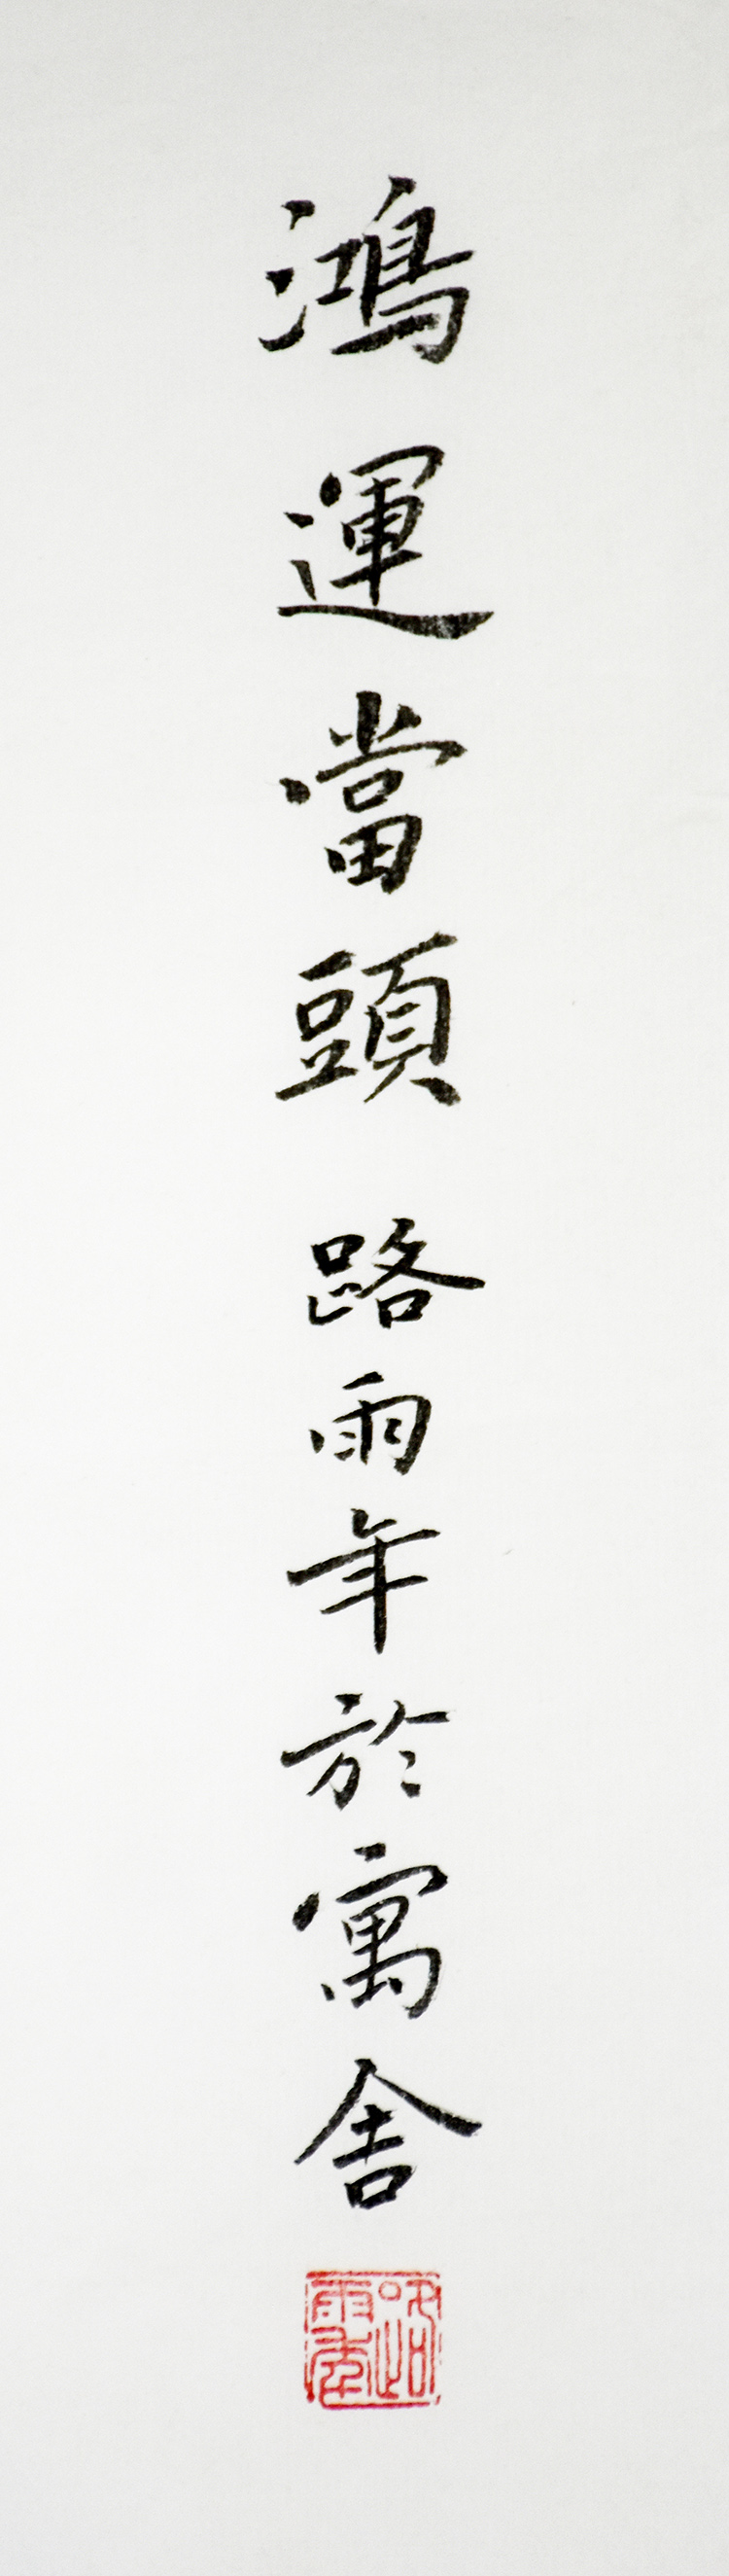 鴻運當頭 路雨年於寓舍
路雨年